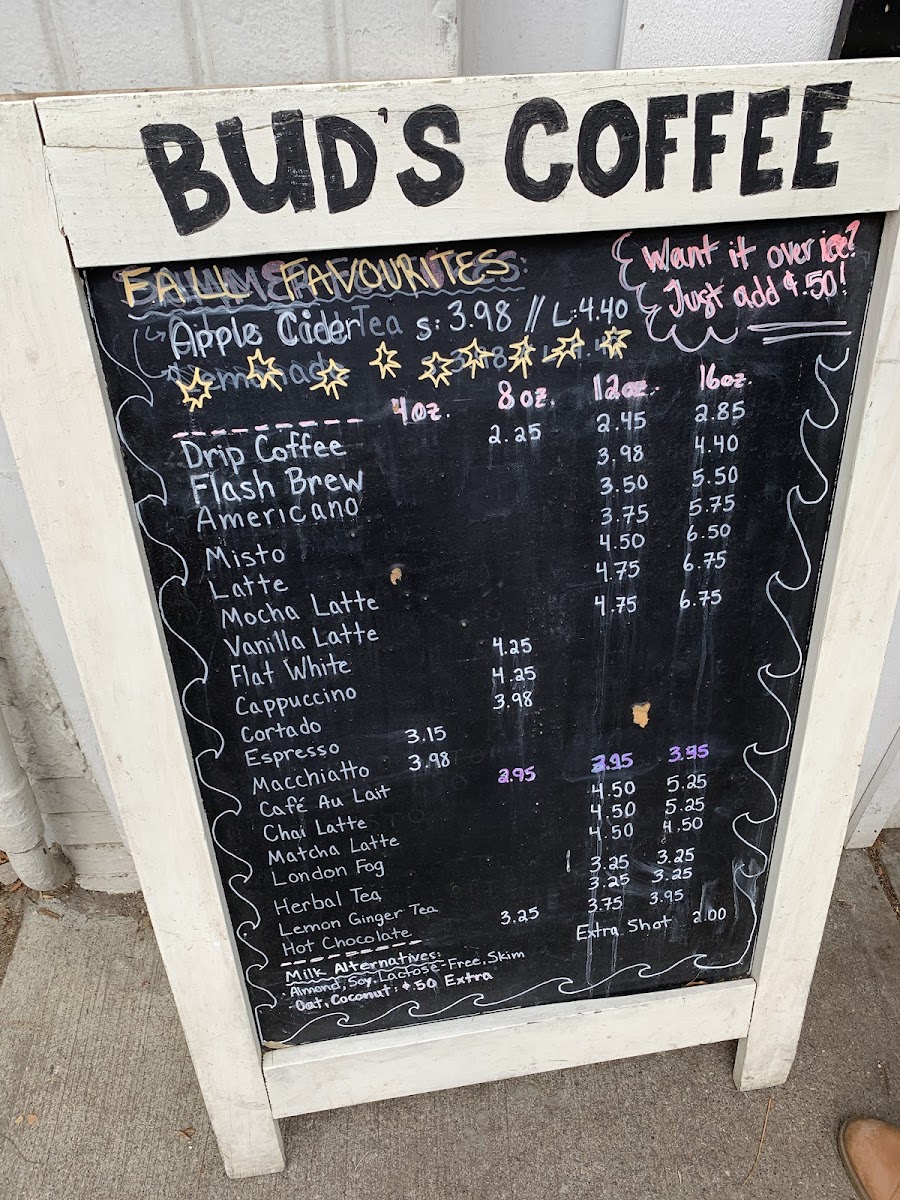 BUD'S COFFEE
FALL FAVOURITES:
Want it over ice?
Just add $.50!
Apple Cider S: 3.98 // L: 4.40
4oz. 8oz. 12oz. 16oz.
Drip Coffee 2.25 2.45 2.85
Flash Brew 3.98 4.40
Americano 3.50 5.50
Misto 3.75 5.75
Latte 4.50 6.50
Mocha Latte 4.75 6.75
Vanilla Latte 4.75 6.75
Flat White 4.25
Cappuccino 4.25
Cortado 3.98
Espresso 3.15
Macchiatto 3.98
Café Au Lait 2.95 3.95
Chai Latte 4.50 5.25
Matcha Latte 4.50 5.25
London Fog 4.50 4.50
Herbal Tea 3.25 3.25
Lemon Ginger Tea 3.25 3.25
Hot Chocolate 3.25 3.75 3.95
Extra Shot 2.00
Milk Alternatives:
Almond, Soy, Lactose-Free, Skim
Oat, Coconut: $.50 Extra